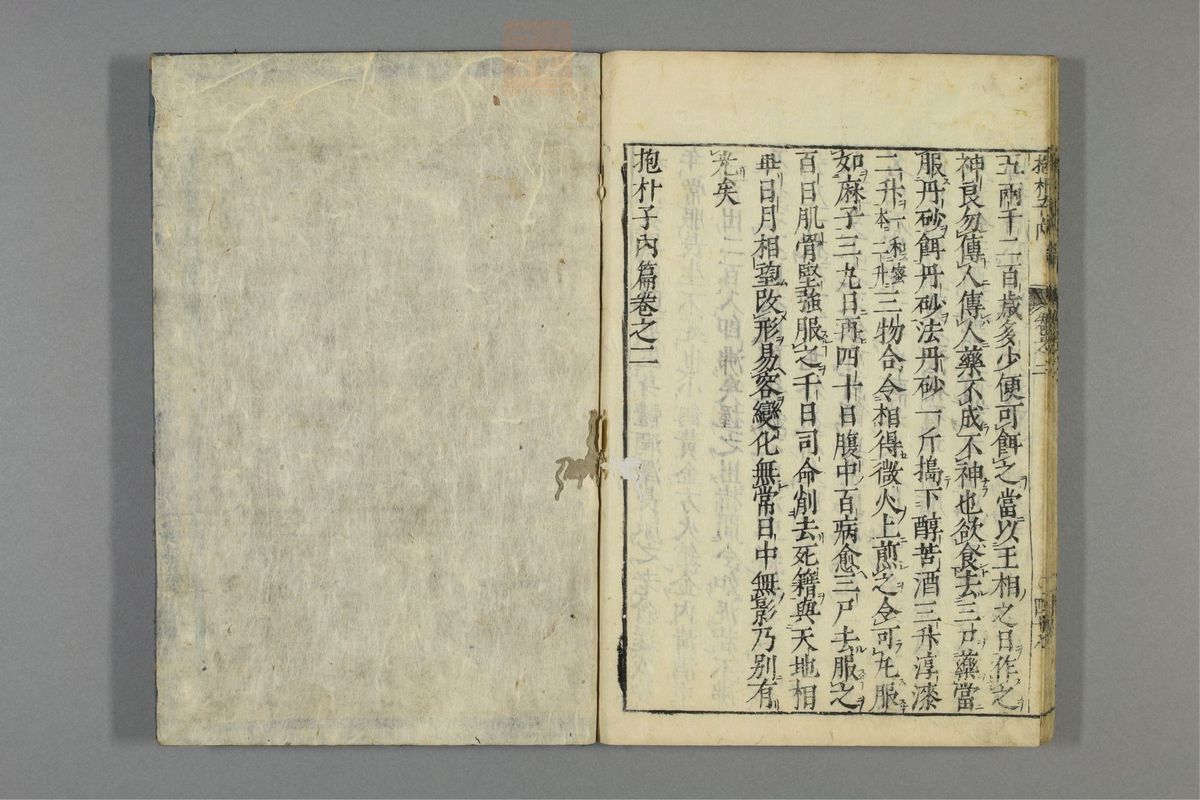 五兩千二百歲多少便可餌之當以王相之日作之
神良勿傳人傳人藥不成不神也欲食去三尸藥當
服丹砂餌丹砂法丹砂一斤搗下醇苦酒三升淳漆
二升一本二升和蜜三物合令相得微火上煎之令可丸服
如麻子三丸日再四十日腹中百病愈三尸去服之
百日肌骨堅強服之千日司命削去死籍與天地相
畢日月相望改形易容變化無常日中無影乃別有
光矣
抱朴子內篇卷之二